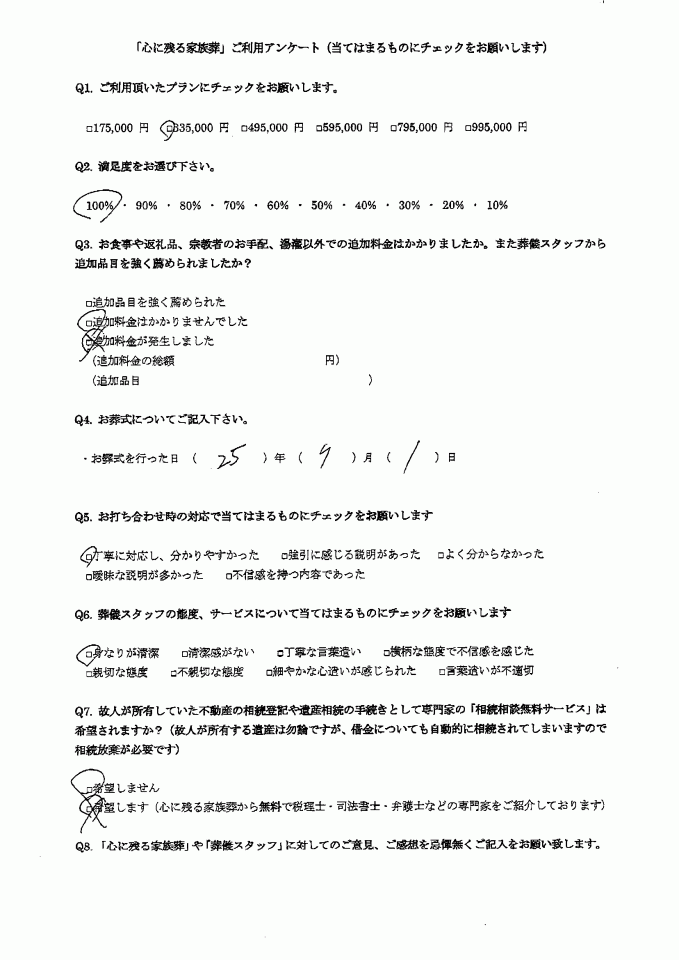 「心に残る家族葬」ご利用アンケート（当てはまるものにチェックをお願いします）
Q1. ご利用頂いたプランにチェックをお願いします。
□175,000 円 □335,000 円 □495,000 円 □595,000 円 □795,000 円 □995,000 円
Q2. 満足度をお選び下さい。
100% ・ 90% ・ 80% ・ 70% ・ 60% ・ 50% ・ 40% ・ 30% ・ 20% ・ 10%
Q3. お食事や返礼品、宗教者のお手配、湯灌以外での追加料金はかかりましたか。また葬儀スタッフから
追加品目を強く薦められましたか？
□追加品目を強く薦められた
□追加料金はかかりませんでした
□追加料金が発生しました
（追加料金の総額 円）
（追加品目 ）
Q4. お葬式についてご記入下さい。
・お葬式を行った日 （ 25 ）年（ 9 ）月（ 1 ）日
Q5. お打ち合わせ時の対応で当てはまるものにチェックをお願いします
□丁寧に対応し、分かりやすかった □強引に感じる説明があった □よく分からなかった
□曖昧な説明が多かった □不信感を持つ内容であった
Q6. 葬儀スタッフの態度、サービスについて当てはまるものにチェックをお願いします
□身なりが清潔 □清潔感がない □丁寧な言葉遣い □横柄な態度で不信感を感じた
□親切な態度 □不親切な態度 □細やかな心遣いが感じられた □言葉遣いが不適切
Q7. 故人が所有していた不動産の相続登記や遺産相続の手続きとして専門家の「相続相談無料サービス」は
希望されますか？（故人が所有する遺産は勿論ですが、借金についても自動的に相続されてしまいますので
相続放棄が必要です）
□希望しません
□希望します（心に残る家族葬から無料で税理士・司法書士・弁護士などの専門家をご紹介しております）
Q8. 「心に残る家族葬」や「葬儀スタッフ」に対してのご意見、ご感想を忌憚無くご記入をお願い致します。